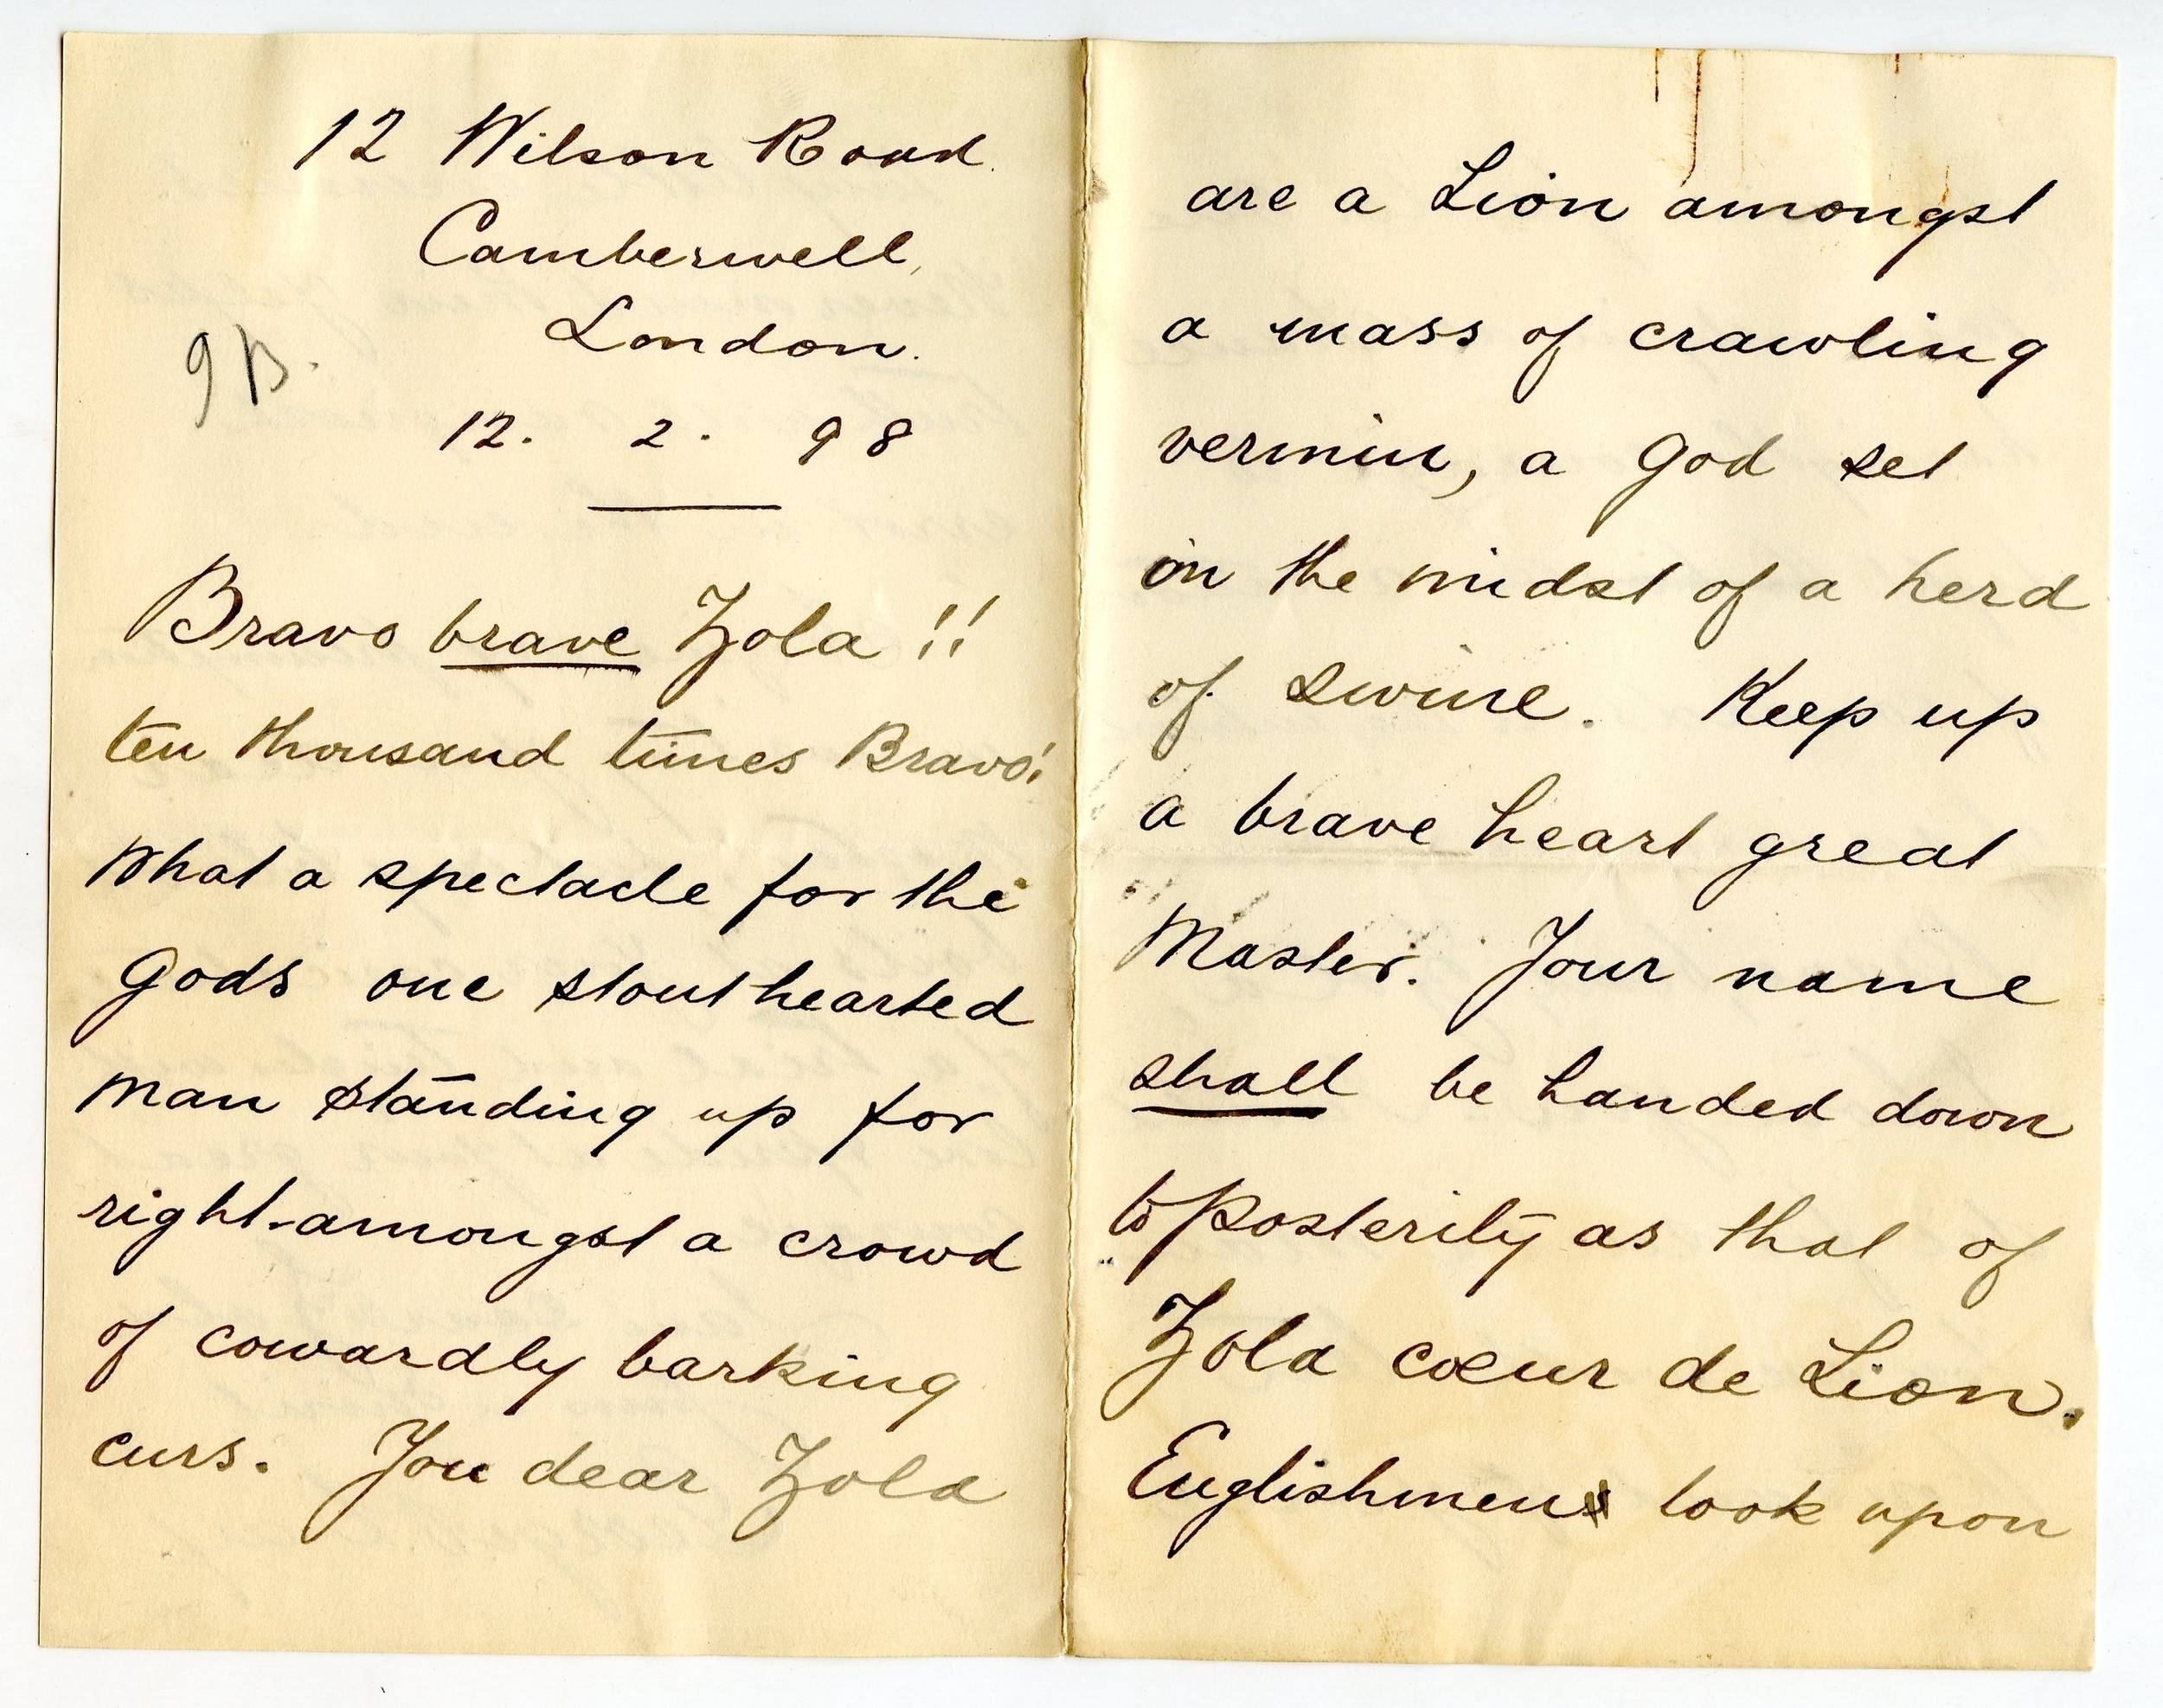 12 Wilson Road.
Camberwell,
London.
9B.
12. 2. 98
Bravo brave Zola!!
ten thousand times Bravo!
What a spectacle for the
Gods one stouthearted
man standing up for
right amongst a crowd
of cowardly barking
curs. You dear Zola
are a Lion amongst
a mass of crawling
vermin, a God set
in the midst of a herd
of swine. Keep up
a brave heart great
Master. Your name
shall be handed down
to posterity as that of
Zola cœur de Lion.
Englishmen look upon